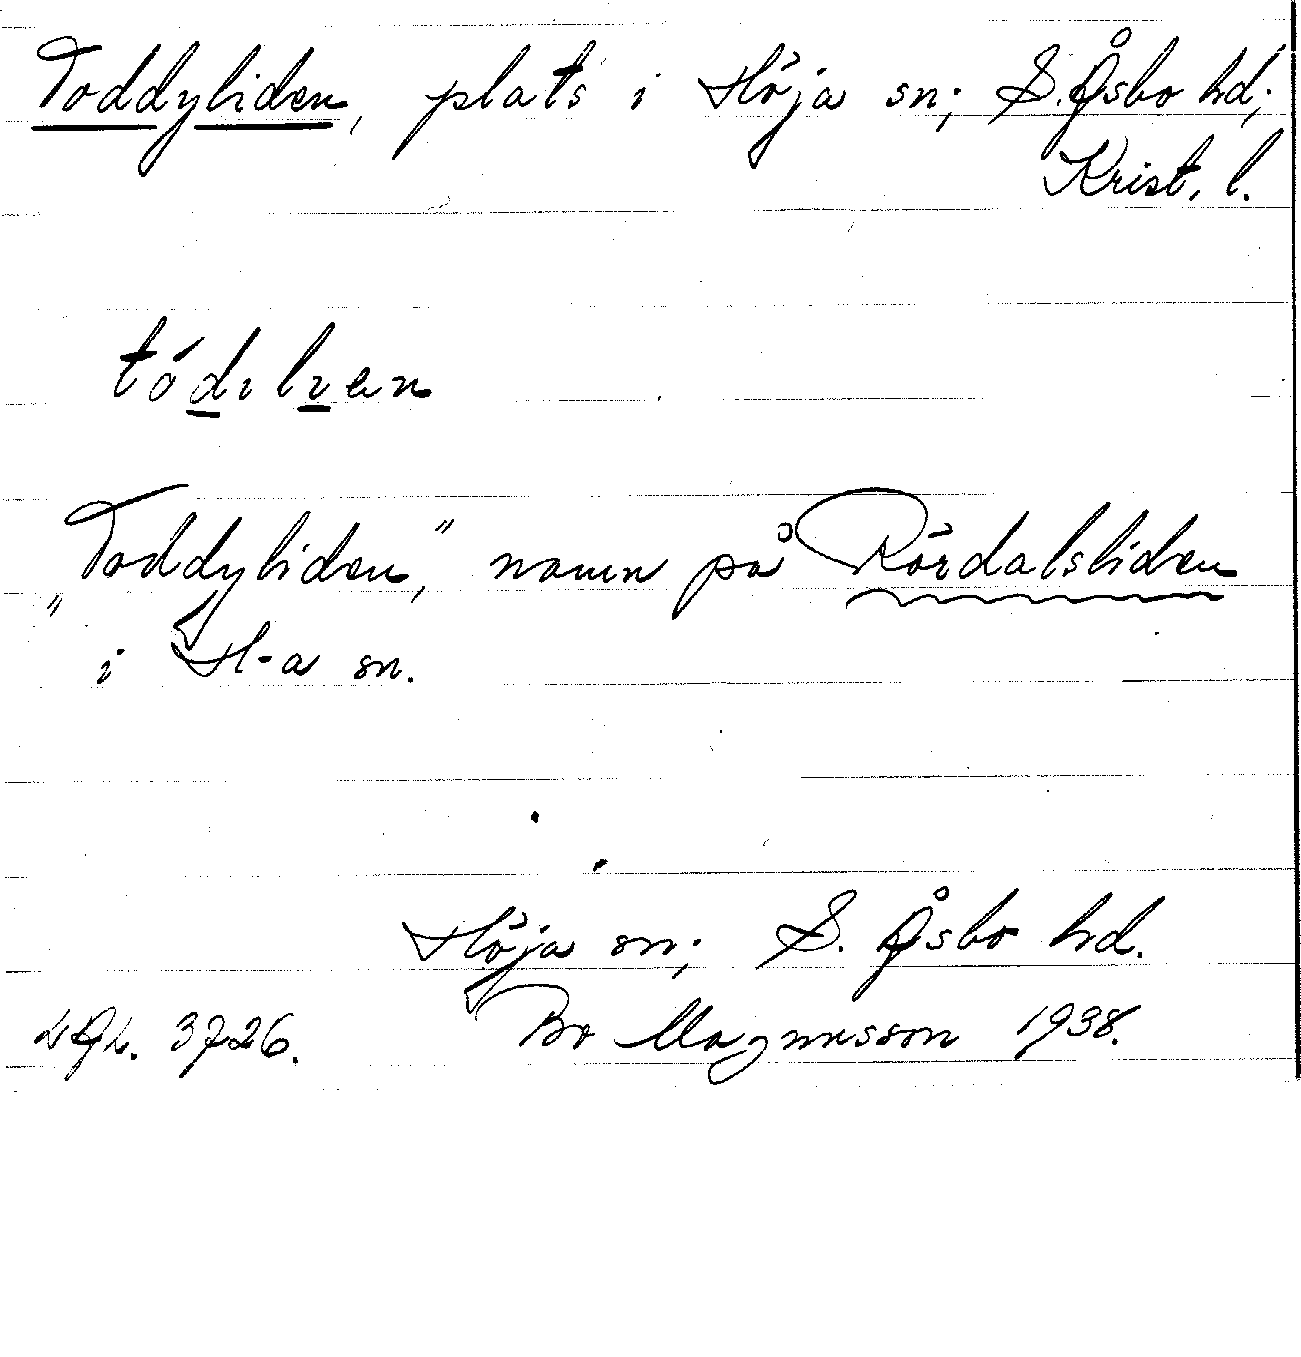 Toddyliden, plats i Höja sn; S. Åsbo hd;
Krist. l.
tódılıen
"Toddyliden," namn på Rördalsliden
i H-a sn.
Höja sn; S. Åsbo hd.
LAL. 3726. Bo Magnusson 1938.